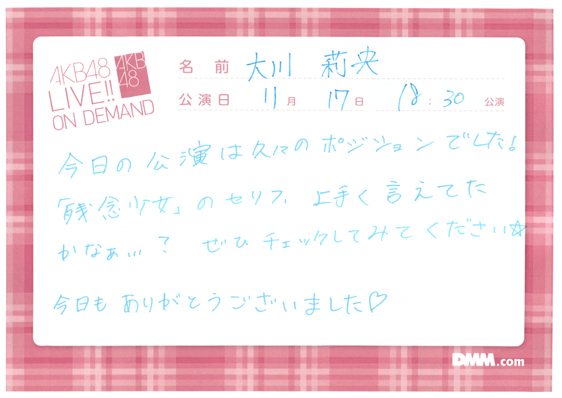 AKB48
LIVE!!
ON DEMAND
AKB
48
名前 大川 莉央
公演日 11月 17日 18:30 公演
今日の公演は久々のポジションでした!
「残念少女」のセリフ、上手く言えてた
かなぁ...? ぜひチェックしてみてください☆
今日もありがとうございました♡
DMM.com